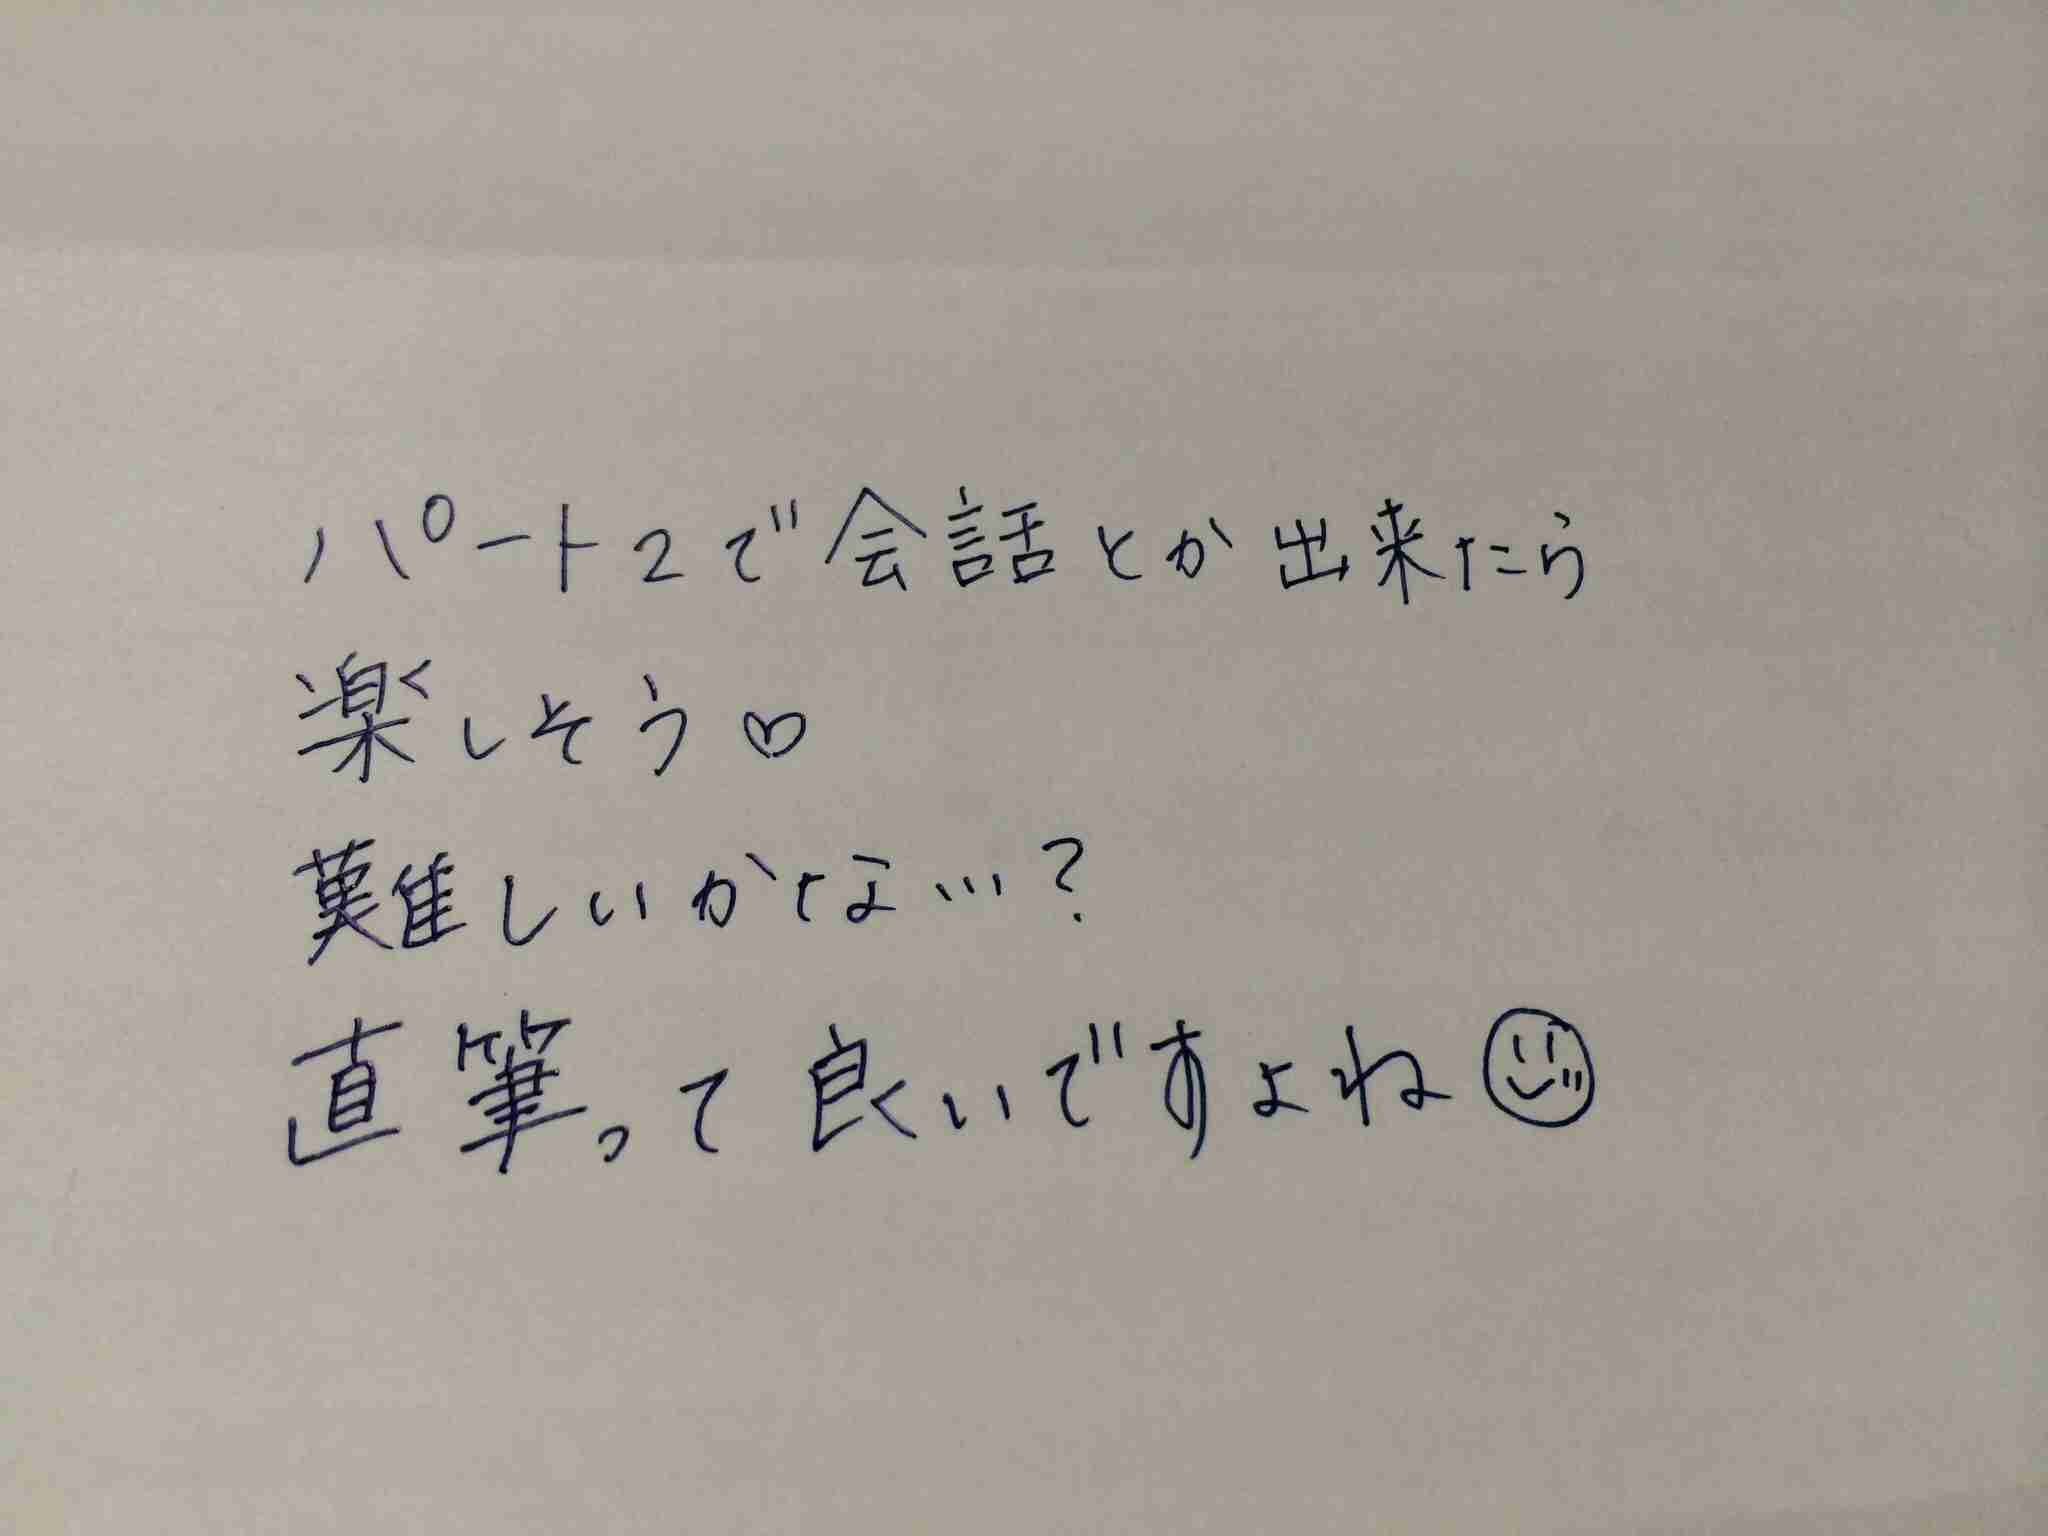 パート2で会話とか出来たら
楽しそう♡
難しいかな…?
直筆って良いですよね☺